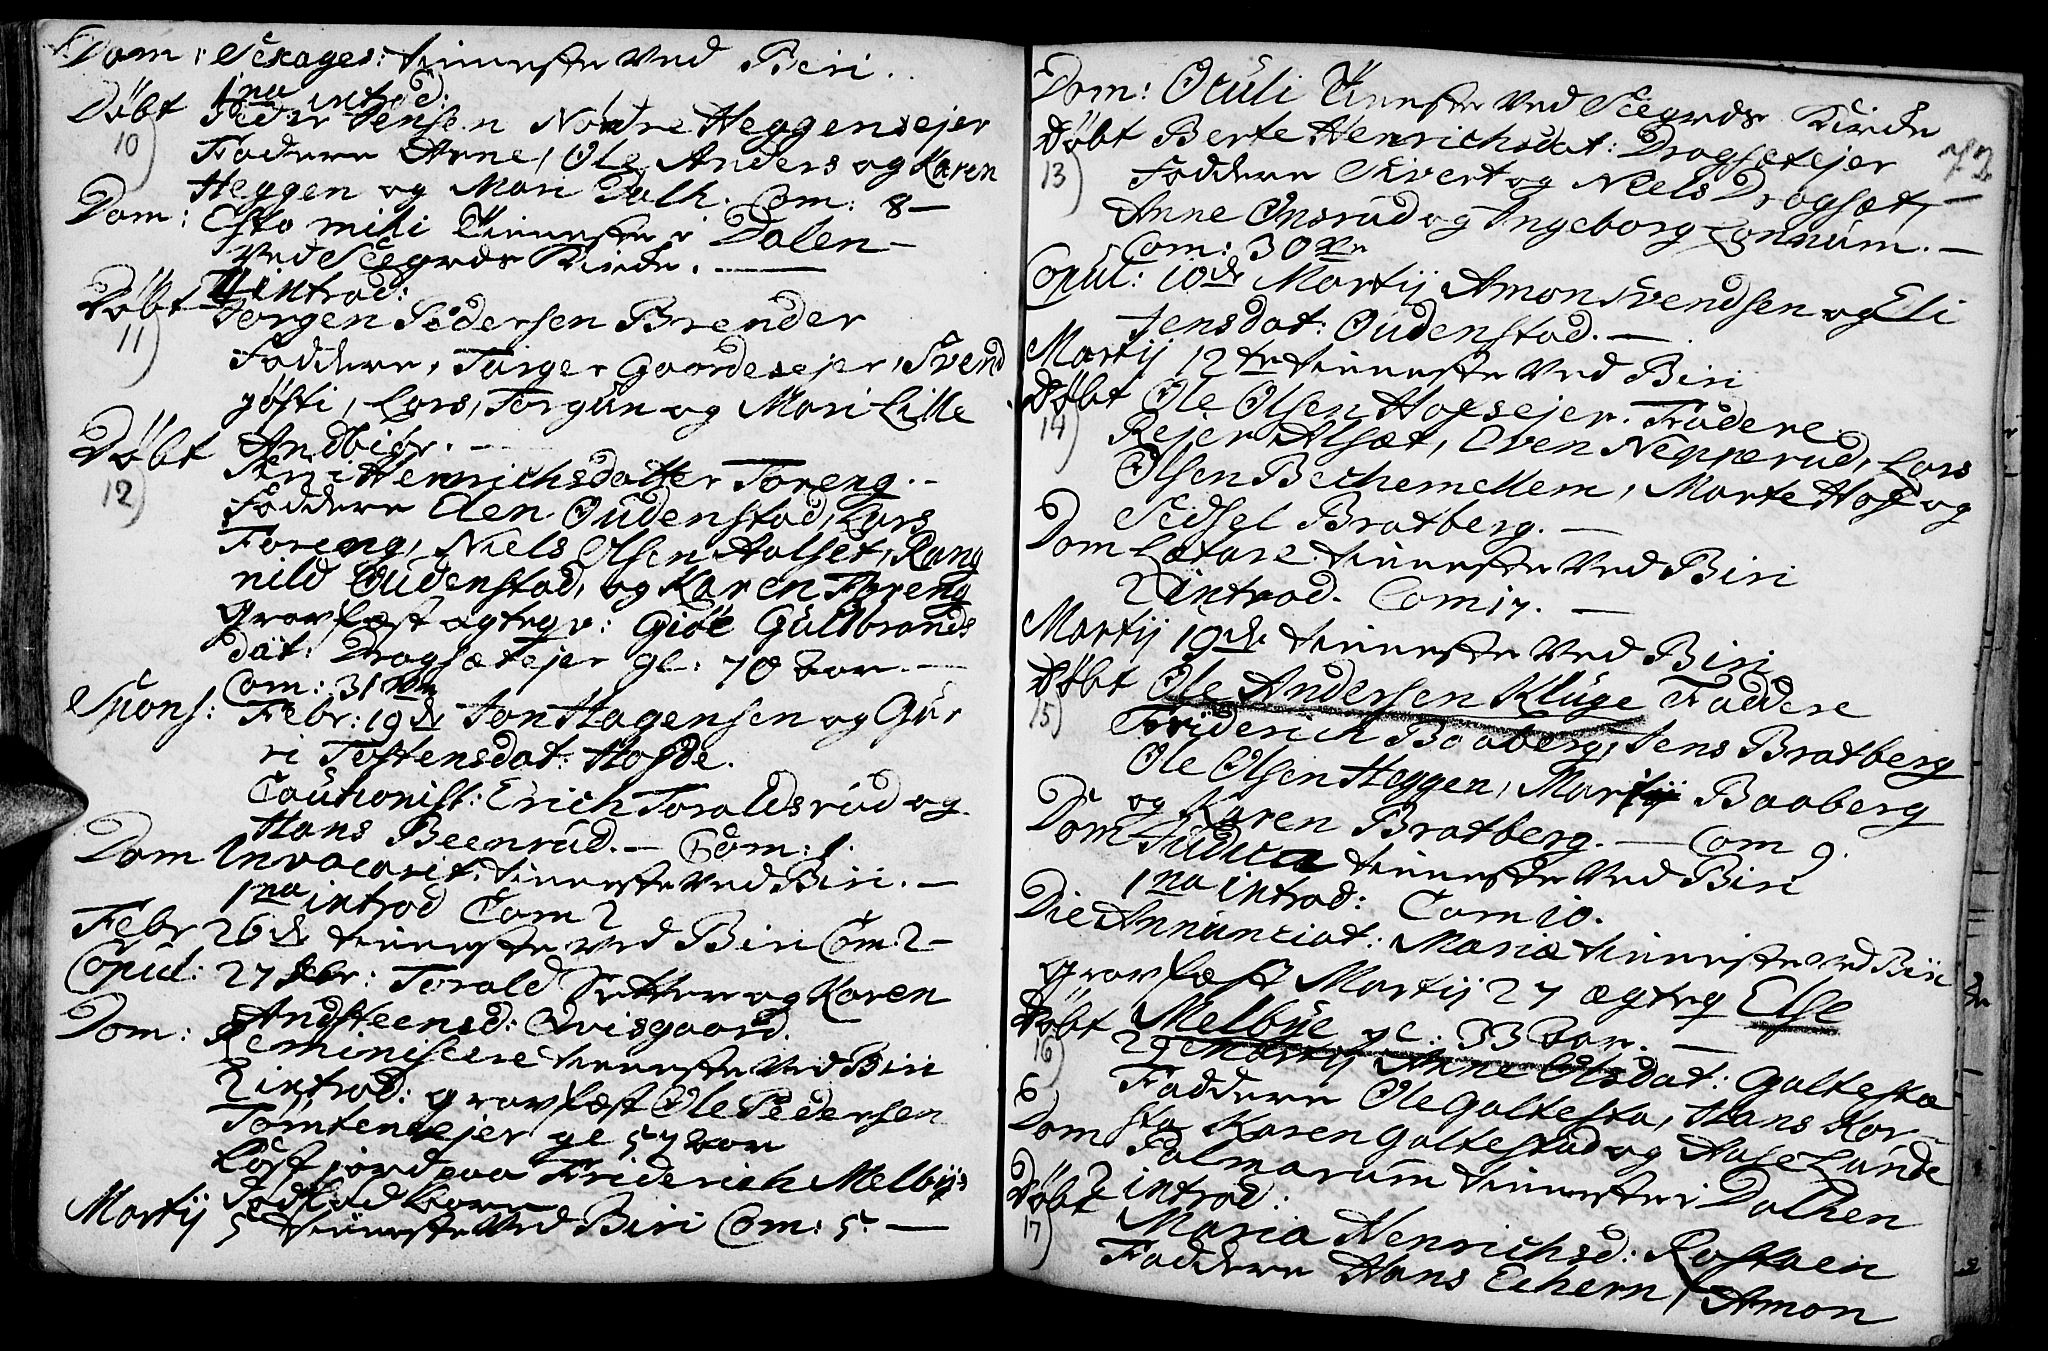 Dom: Sexages: tieneste ved Biri.
1na introd:
Döbt Peder Jensen Nordre Heggensejer
10) Faddere Arne, Ole, Anders og Karen
Heggen og Mari Dalh. Com: 8 —
Dom: Esto mihi tieneste i Dalen —
ved Seegrds Kirke. —
11 introd:
Döbt Jorgen Pedersen Brender
11) Faddere, Targer Gaardesejer, Svend
gösti, Lars, Torgun og Mari Lille
Andbiör. —
Döbt Henrichsdatter Toreng. —
12) Faddere Elen Oudenstad, Lars
Foreng, Niels Olsen Aalset, Rang
nild Oudenstad, og Karen Foreng
Gravfæst ægtqv: Giöe Guldbrands
dat: Dragsætejer gl: 70 Aar. —
Com: 31
Spons: Febr: 19de Jon Hagensen og Gur
ri Testensdat: Hofde.
Cautionist: Erich Toraldsrud og
Hans Beenrud. — Com: 1.
Dom Invocavit tieneste ved Biri. —
1na introd Com 2
Febr 26de tieneste ved Biri Com 2 —
Copul: 27 Febr: Torald Setter og Karen
Andsteensd: Qvisgaard.
Dom: Reminiscere tieneste ved Biri
2 introd: Gravfæst Ole Pedersen
Tomtensejer gl 57 Aar
Kast jord paa Friderich Melbyes
Martij 5 tieneste ved Biri Com: 5. —
Dom: Oculi tieneste ved Seegrds Kirke
72
Döbt Berte Henrichsdat: Dragsætejer
13) Faddere Sivert og Niels Dragsæt,
Anne Onsrud og Ingeborg Lonnum. —
Com: 30
Copul: 10de Martij Amon Svendsen og Eli
Jensdat: Oudenstad. —
Martij 12te tieneste ved Biri
Döbt Ole Olsen Hofsejer. Faddere
14) Rejer Alsæt, Even Nepperud, Lars
Olsen Bechemellem, Marte Hof og
Sidsel Bratberg. —
Dom Lætare tieneste ved Biri
2 introd. Com 17. —
Martij 19de tieneste ved Biri
Döbt Ole Andersen Kluge Faddere
15) Friderich Baaberg, Jens Bratberg
Ole Olsen Heggen, Baaberg
og Karen Bratberg. — Com 9.
Dom Judica tieneste ved Biri
1na introd: Com 10.
Die Annunciat: Mariæ tieneste ved Biri
Gravfæst Martij 27 ægtqv Else
Melbye gl: 33 Aar. —
Döbt 29 Martij Anne Olsdat: Galtesta
16) Faddere Ole Galtesta, Hans Kor-
sta Karen Galtestad og Aase Lunde
Dom Palmarum tieneste i Dalhen
2 introd:
Döbt Maria Henrichsd: Rostaen
17) Faddere Hans Echern, Amon